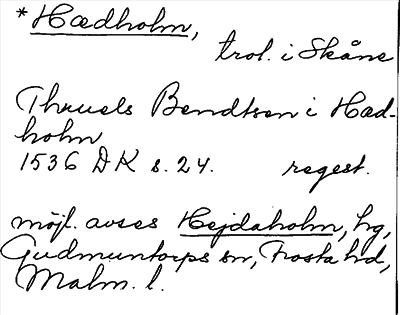 *Hædholm,
trol. i Skåne
Thruels Bendtsen i Hæd-
holm
1536 DK s. 24. regest.
möjl. avses Hejdaholm, hg,
Gudmuntorps sn, Frosta hd,
Malm. l.